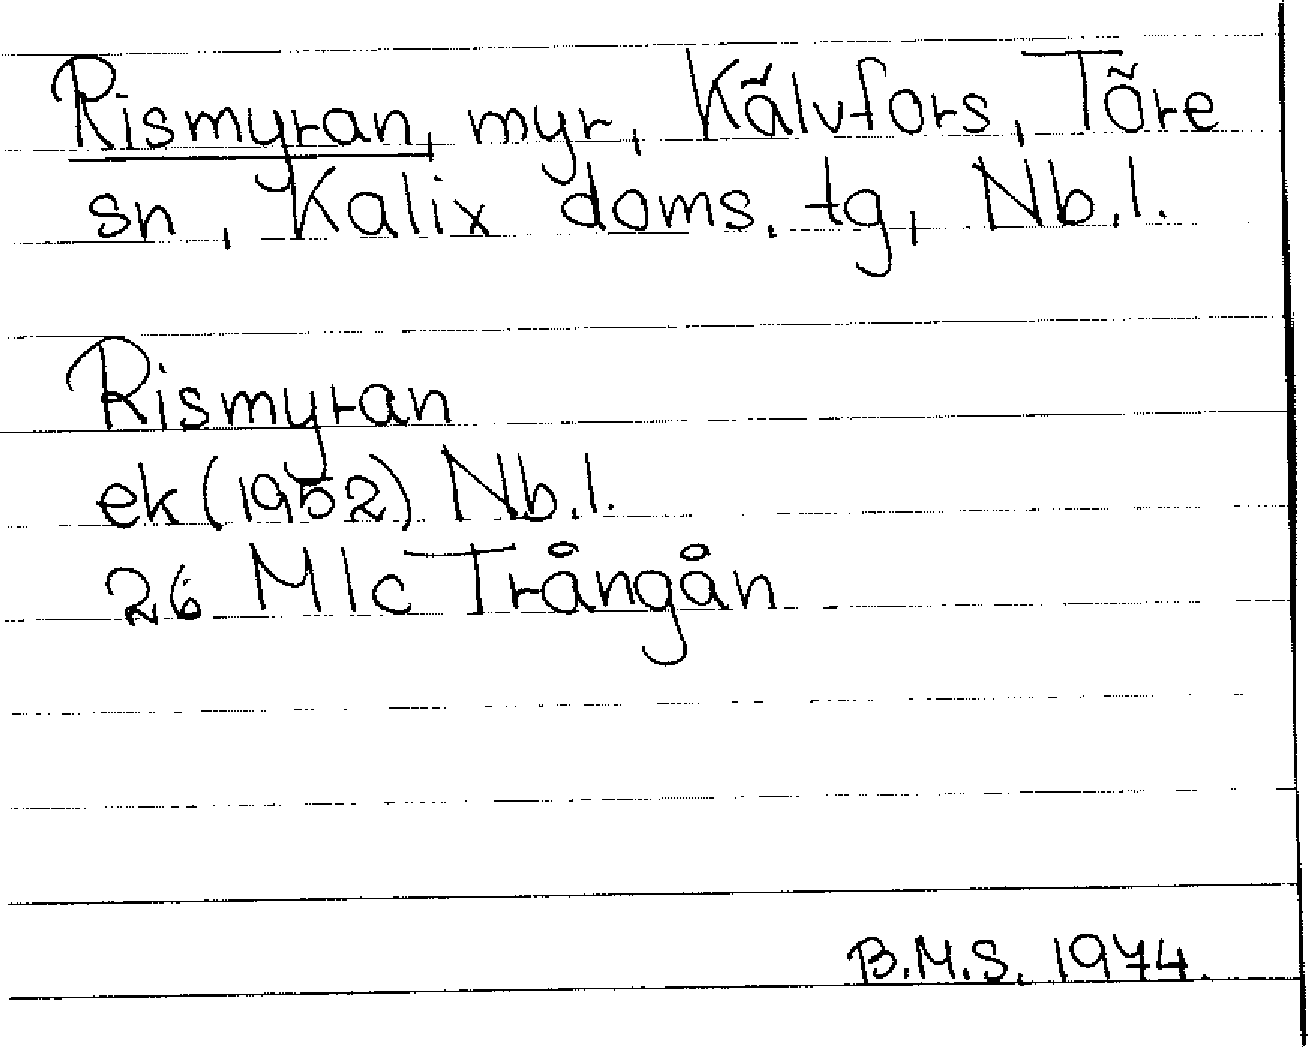 Rismyran, myr, Kälvfors, Töre
sn, Kalix doms. tg, Nb.l.
Rismyran
ek (1952) Nb.l.
26 M1c Trångån
B.M.S. 1974.